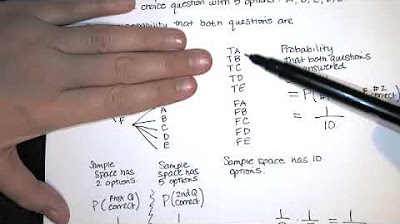 choice question with 5 options: A, B, C, D, E
probability that both questions are
TA
TB
TC
TD
TE
FA
FB
FC
FD
FE
Probability
that both questions
answered
= P(
correct)
= 1/10
F
A
B
C
D
E
Sample
space has
2 options.
Sample
space has
5 options.
Sample space has 10
options.
P(First Q
correct)
P(2nd Q
correct)